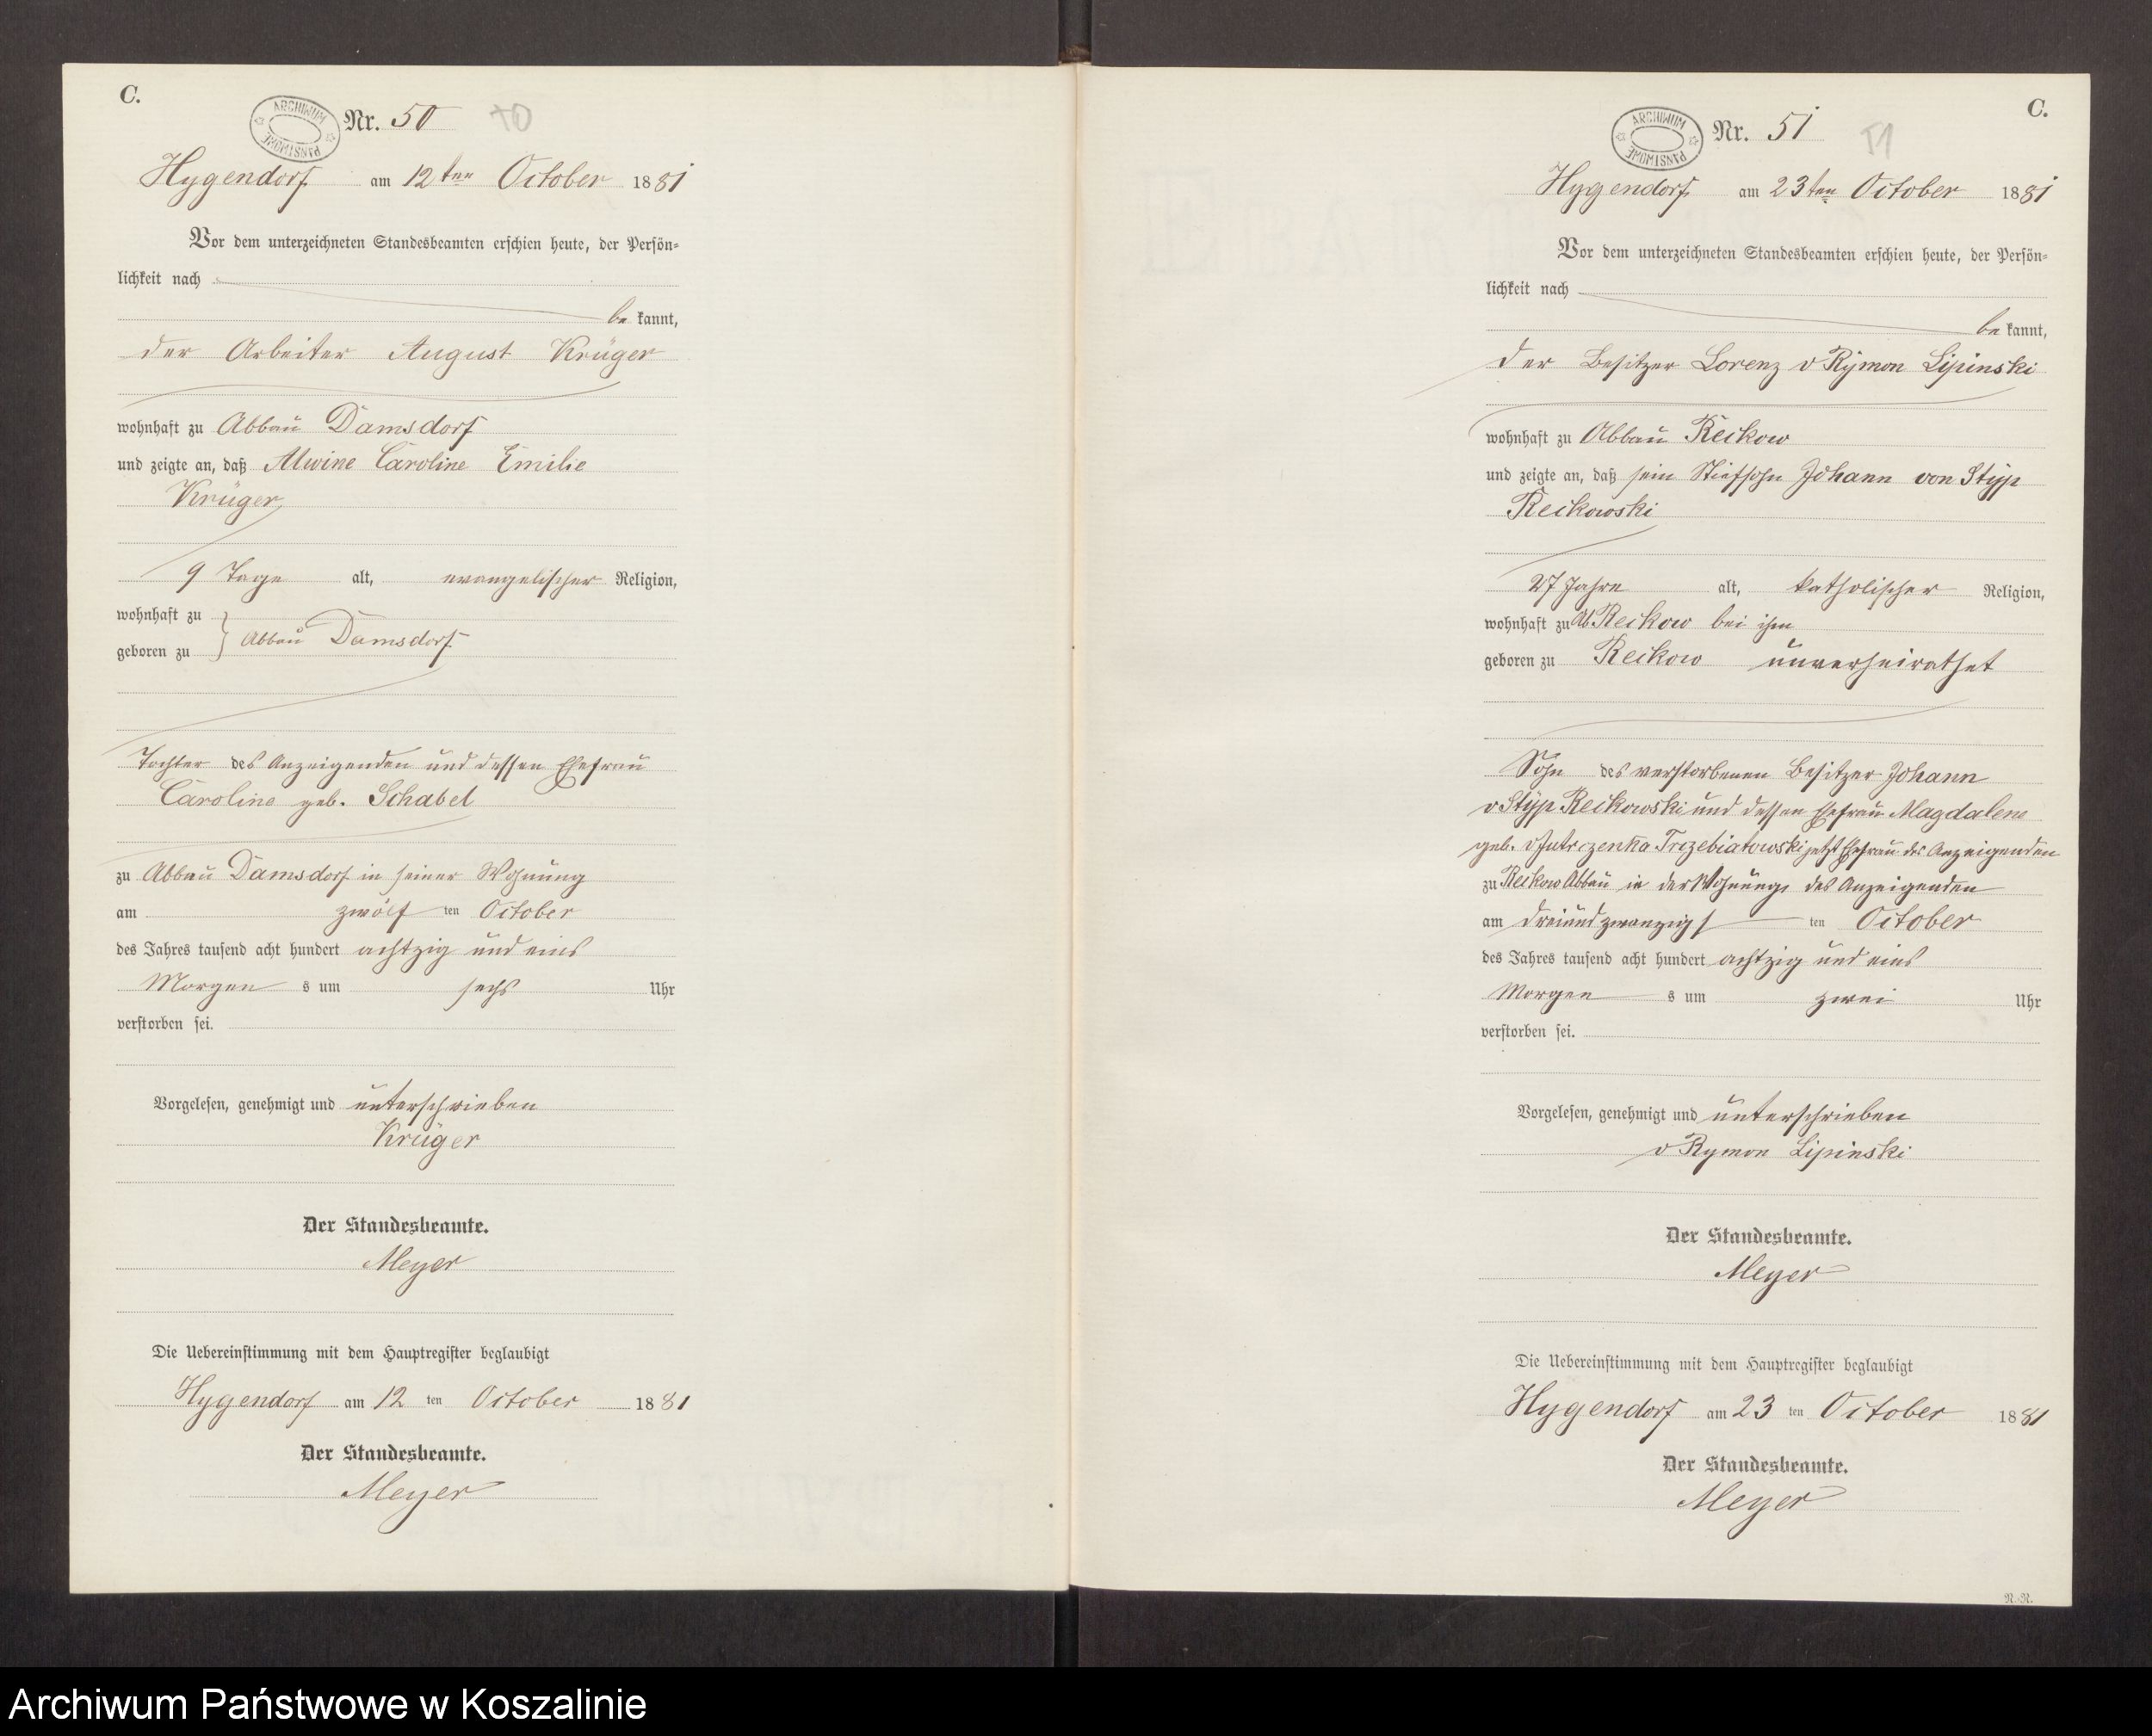 C.
ARCHIWUM PAŃSTWOWE
Nr. 50
Hygendorf am 12ten October 1881
Vor dem unterzeichneten Standesbeamten erschien heute, der Persön-
lichkeit nach
be kannt,
der Arbeiter August Krüger
wohnhaft zu Abbau Damsdorf
und zeigte an, daß Alwine Caroline Emilie
Krüger
9 Tage alt, evangelischer Religion,
wohnhaft zu
} Abbau Damsdorf
geboren zu
Tochter des Anzeigenden und dessen Ehefrau
Caroline geb. Schabel
zu Abbau Damsdorf in seiner Wohnung
am zwölf ten October
des Jahres tausend acht hundert achtzig und eins
Morgen s um sechs Uhr
verstorben sei.
Vorgelesen, genehmigt und unterschrieben
Krüger
Der Standesbeamte.
Meyer
Die Uebereinstimmung mit dem Hauptregister beglaubigt
Hygendorf am 12 ten October 1881
Der Standesbeamte.
Meyer
C.
ARCHIWUM PAŃSTWOWE
Nr. 51 51
Hygendorf am 23ten October 1881
Vor dem unterzeichneten Standesbeamten erschien heute, der Persön-
lichkeit nach
be kannt,
der Besitzer Lorenz v Rymon Lipinski
wohnhaft zu Abbau Reikow
und zeigte an, daß sein Stiefsohn Johann von Styp
Reikowski
27 Jahre alt, katholischer Religion,
wohnhaft zu Ab Reikow bei ihm
geboren zu Reikow unverheirathet
Sohn des verstorbenen Besitzer Johann
v Styp Reikowski und dessen Ehefrau Magdalene
geb. v Jutrczenka Trzebiatowski jetzt Ehefrau des Anzeigenden
zu Reikow Abbau in der Wohnung des Anzeigenden
am dreiundzwanzigs ten October
des Jahres tausend acht hundert achtzig und eins
Morgen s um zwei Uhr
verstorben sei.
Vorgelesen, genehmigt und unterschrieben
v Rymon Lipinski
Der Standesbeamte.
Meyer
Die Uebereinstimmung mit dem Hauptregister beglaubigt
Hygendorf am 23 ten October 1881
Der Standesbeamte.
Meyer
Archiwum Państwowe w Koszalinie